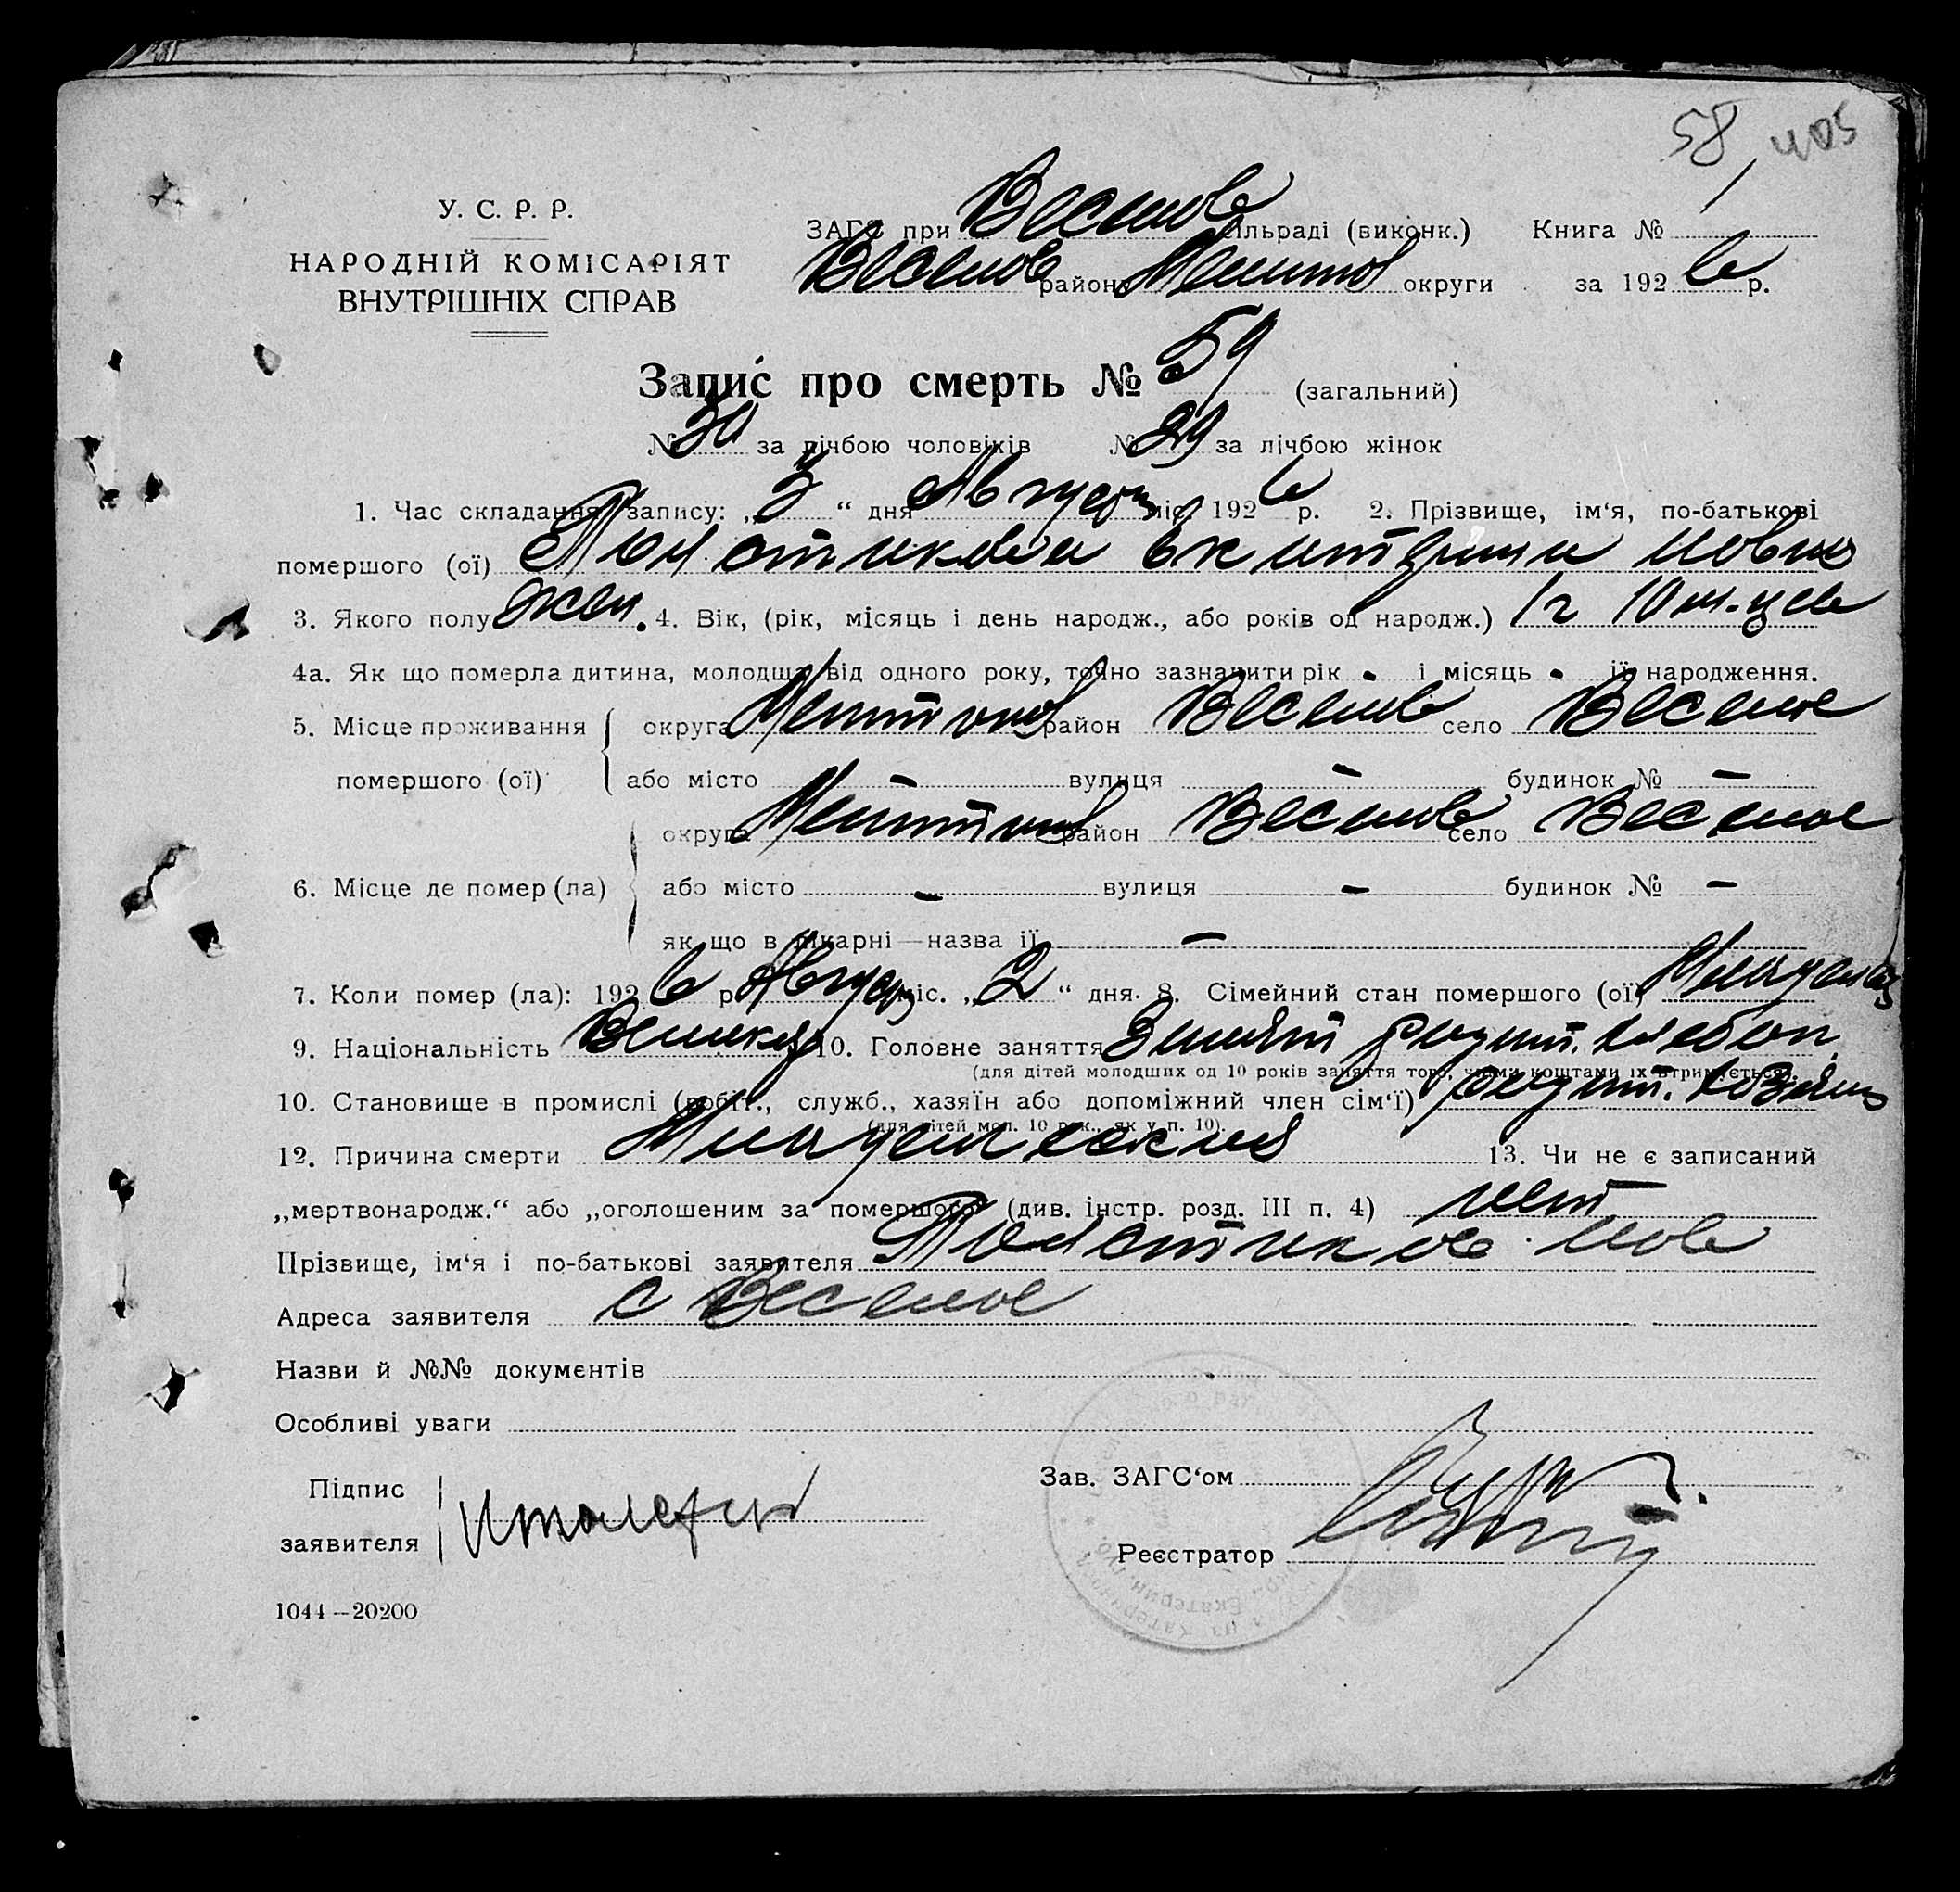 58, 405
У. С. Р. Р.
НАРОДНІЙ КОМІСАРІЯТ
ВНУТРІШНІХ СПРАВ
ЗАГС при Весилов сільраді (виконк.) Книга №
Веселов району Мелитоп округи за 1926 р.
Запис про смерть № 59 (загальний)
№ 30 за лічбою чоловіків № 29 за лічбою жінок
1. Час складання запису: „3“ дня Август міс. 1926 р. 2. Прізвище, ім‘я, по-батькові
помершого (ої) Екатерина
3. Якого полу жен. 4. Вік, (рік, місяць і день народж., або років од народж.) 1 г 10 м-цев
4а. Як що померла дитина, молодша від одного року, точно зазначити рік - і місяць - її народження.
5. Місце проживання округа Мелитопол район Веселов село Веселое
помершого (ої) або місто – вулиця – будинок № –
округа Мелитопол район Веселов село Веселое
6. Місце де помер (ла) або місто – вулиця – будинок № –
як що в лікарні — назва її –
7. Коли помер (ла): 1926 р. Август міс. „2“ дня. 8. Сімейний стан помершого (ої) Младенец
9. Національність 10. Головне заняття Занят родит. хлебоп.
(для дітей молодших од 10 років заняття того, чиїми коштами їх втримується).
10. Становище в промислі (робіт., служб., хазяїн або допоміжний член сім‘ї) родит. хозяин
(для дітей мол. 10 рок., як у п. 10).
12. Причина смерти Младенческая 13. Чи не є записаний
„мертвонародж.“ або „оголошеним за помершого“ (див. інстр. розд. III п. 4) нет
Прізвище, ім‘я і по-батькові заявителя
Адреса заявителя с Веселое
Назви й №№ документів
Особливі уваги
Підпис
заявителя
Зав. ЗАГС‘ом
Реєстратор
1044—20200